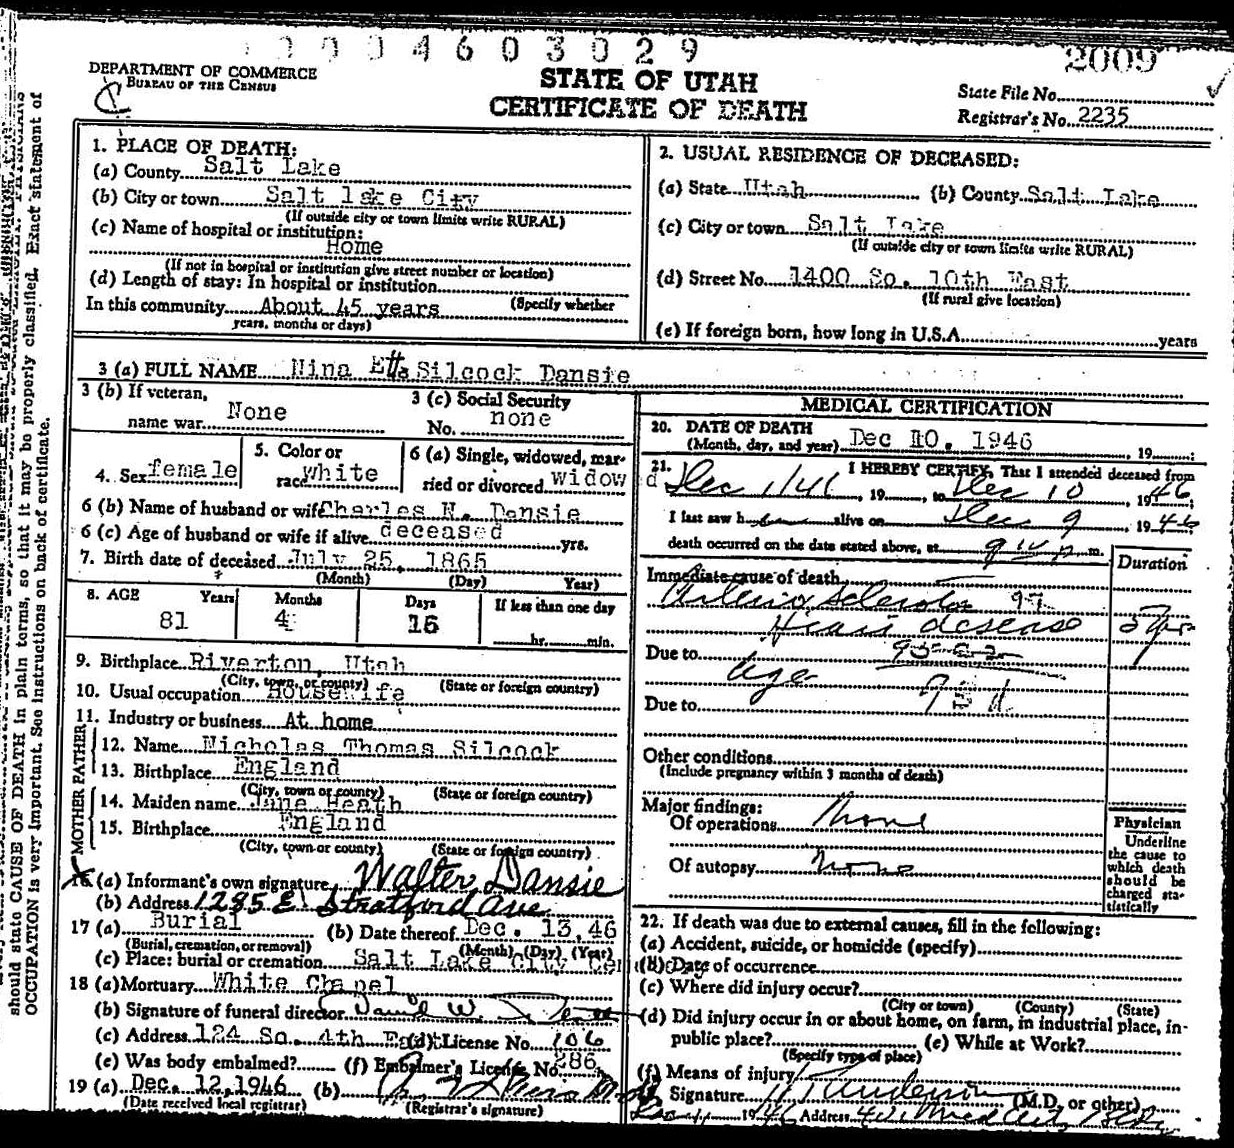 0004603029
2009
DEPARTMENT OF COMMERCE
BUREAU OF THE CENSUS
STATE OF UTAH
CERTIFICATE OF DEATH
State File No.
Registrar's No. 2235
1. PLACE OF DEATH:
(a) County Salt Lake
(b) City or town Salt lake City
(If outside city or town limits write RURAL)
(c) Name of hospital or institution:
Home
(If not in hospital or institution give street number or location)
(d) Length of stay: In hospital or institution
In this community About 45 years (Specify whether
years, months or days)
2. USUAL RESIDENCE OF DECEASED:
(a) State Utah (b) County Salt Lake
(c) City or town Salt Lake
(If outside city or town limits write RURAL)
(d) Street No. 1400 So. 10th East
(If rural give location)
(e) If foreign born, how long in U.S.A. years
3 (a) FULL NAME Nina Etta Silcock Dansie
3 (b) If veteran,
name war None
3 (c) Social Security
No. none
4. Sex female
5. Color or
race White
6 (a) Single, widowed, mar-
ried or divorced Widow
6 (b) Name of husband or wife Charles H. Dansie
6 (c) Age of husband or wife if alive deceased yrs.
7. Birth date of deceased July 25, 1865
(Month) (Day) Year)
8. AGE Years Months Days If less than one day
81 4 15 hr. min.
9. Birthplace Riverton, Utah
(City, town, or county) (State or foreign country)
10. Usual occupation Housewife
11. Industry or business At home
FATHER
12. Name Nicholas Thomas Silcock
13. Birthplace England
(City, town or county) (State or foreign country)
MOTHER
14. Maiden name Jane Heath
15. Birthplace England
(City, town or county) (State or foreign country)
16 (a) Informant's own signature Walter Dansie
(b) Address 1285 E Stratford Ave
17 (a) Burial (b) Date thereof Dec. 13, 46
(Burial, cremation, or removal) (Month) (Day) (Year)
(c) Place: burial or cremation Salt Lake City Cem
18 (a) Mortuary White Chapel
(b) Signature of funeral director
(c) Address 124 So. 4th East (d) License No. 106
(e) Was body embalmed? (f) Embalmer's License No. 286
19 (a) Dec. 12, 1946 (b)
(Date received local registrar) (Registrar's signature)
MEDICAL CERTIFICATION
20. DATE OF DEATH
(Month, day, and year) Dec 10, 1946, 19
21. I HEREBY CERTIFY, That I attended deceased from
Dec 1/46, 19, to Dec 10, 1946;
I last saw her alive on Dec 9 1946
death occurred on the date stated above, at m.
Duration
Immediate cause of death
Arteriosclerotic 97
Heart desease
Due to
Age
Due to
Other conditions
(Include pregnancy within 3 months of death)
Major findings:
Of operations None
Of autopsy None
Physician
Underline
the cause to
which death
should be
charged sta-
tistically
22. If death was due to external causes, fill in the following:
(a) Accident, suicide, or homicide (specify)
(b) Date of occurrence
(c) Where did injury occur?
(City or town) (County) (State)
(d) Did injury occur in or about home, on farm, in industrial place, in-
public place? (e) While at Work?
(Specify type of place)
(f) Means of injury
Signature Anderson (M.D. or other)
1946 Address
should state CAUSE OF DEATH in plain terms, so that it may be properly classified. Exact statement of
OCCUPATION is very important. See instructions on back of certificate.